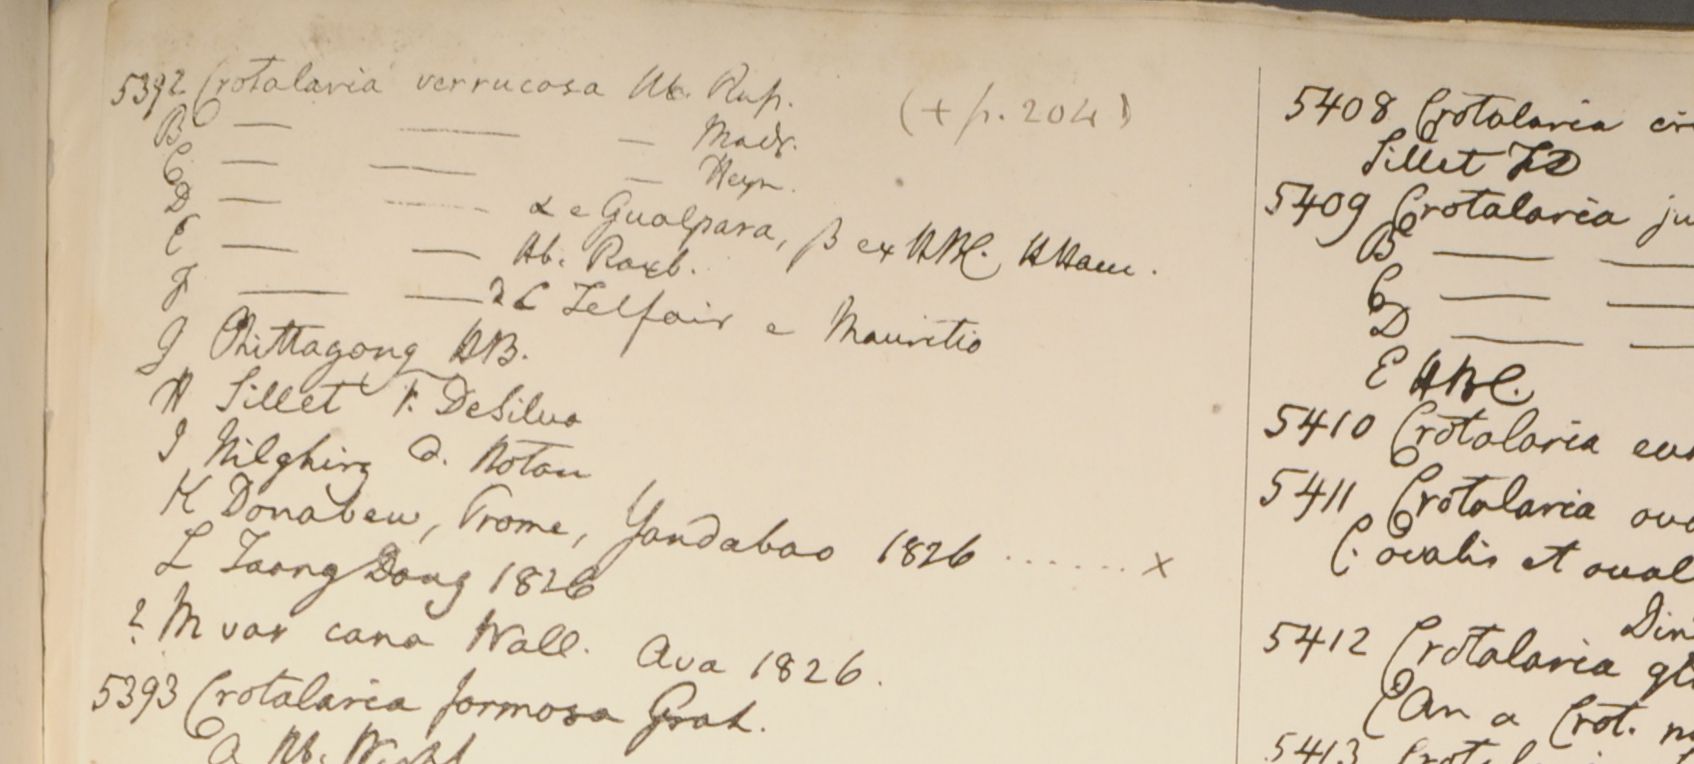 5392 Crotalaria verrucosa Hb. Rup. (+ p. 204)
B — — — Madr.
C — — — Heyn.
D — — α e Gualpara, β ex HBC. HHam.
E — — Hb. Roxb.
F — — Telfair e Mauritio
G Chittagong HB.
H Sillet F. DeSilva
I Nilghiry D. Noton
K Donabew, Prome, Yandabao 1826 ...... x
L Taong Dong 1826
? M var cana Wall. Ava 1826.
5393 Crotalaria formosa Grah.
a Hb. Wight
5408 Crotalaria
Sillet FD
5409 Crotalaria ju
B — —
C — —
D — —
E HBC.
5410 Crotalaria
5411 Crotalaria
C. ovalis et
5412 Crotalaria gl
(An a Crot.
5413